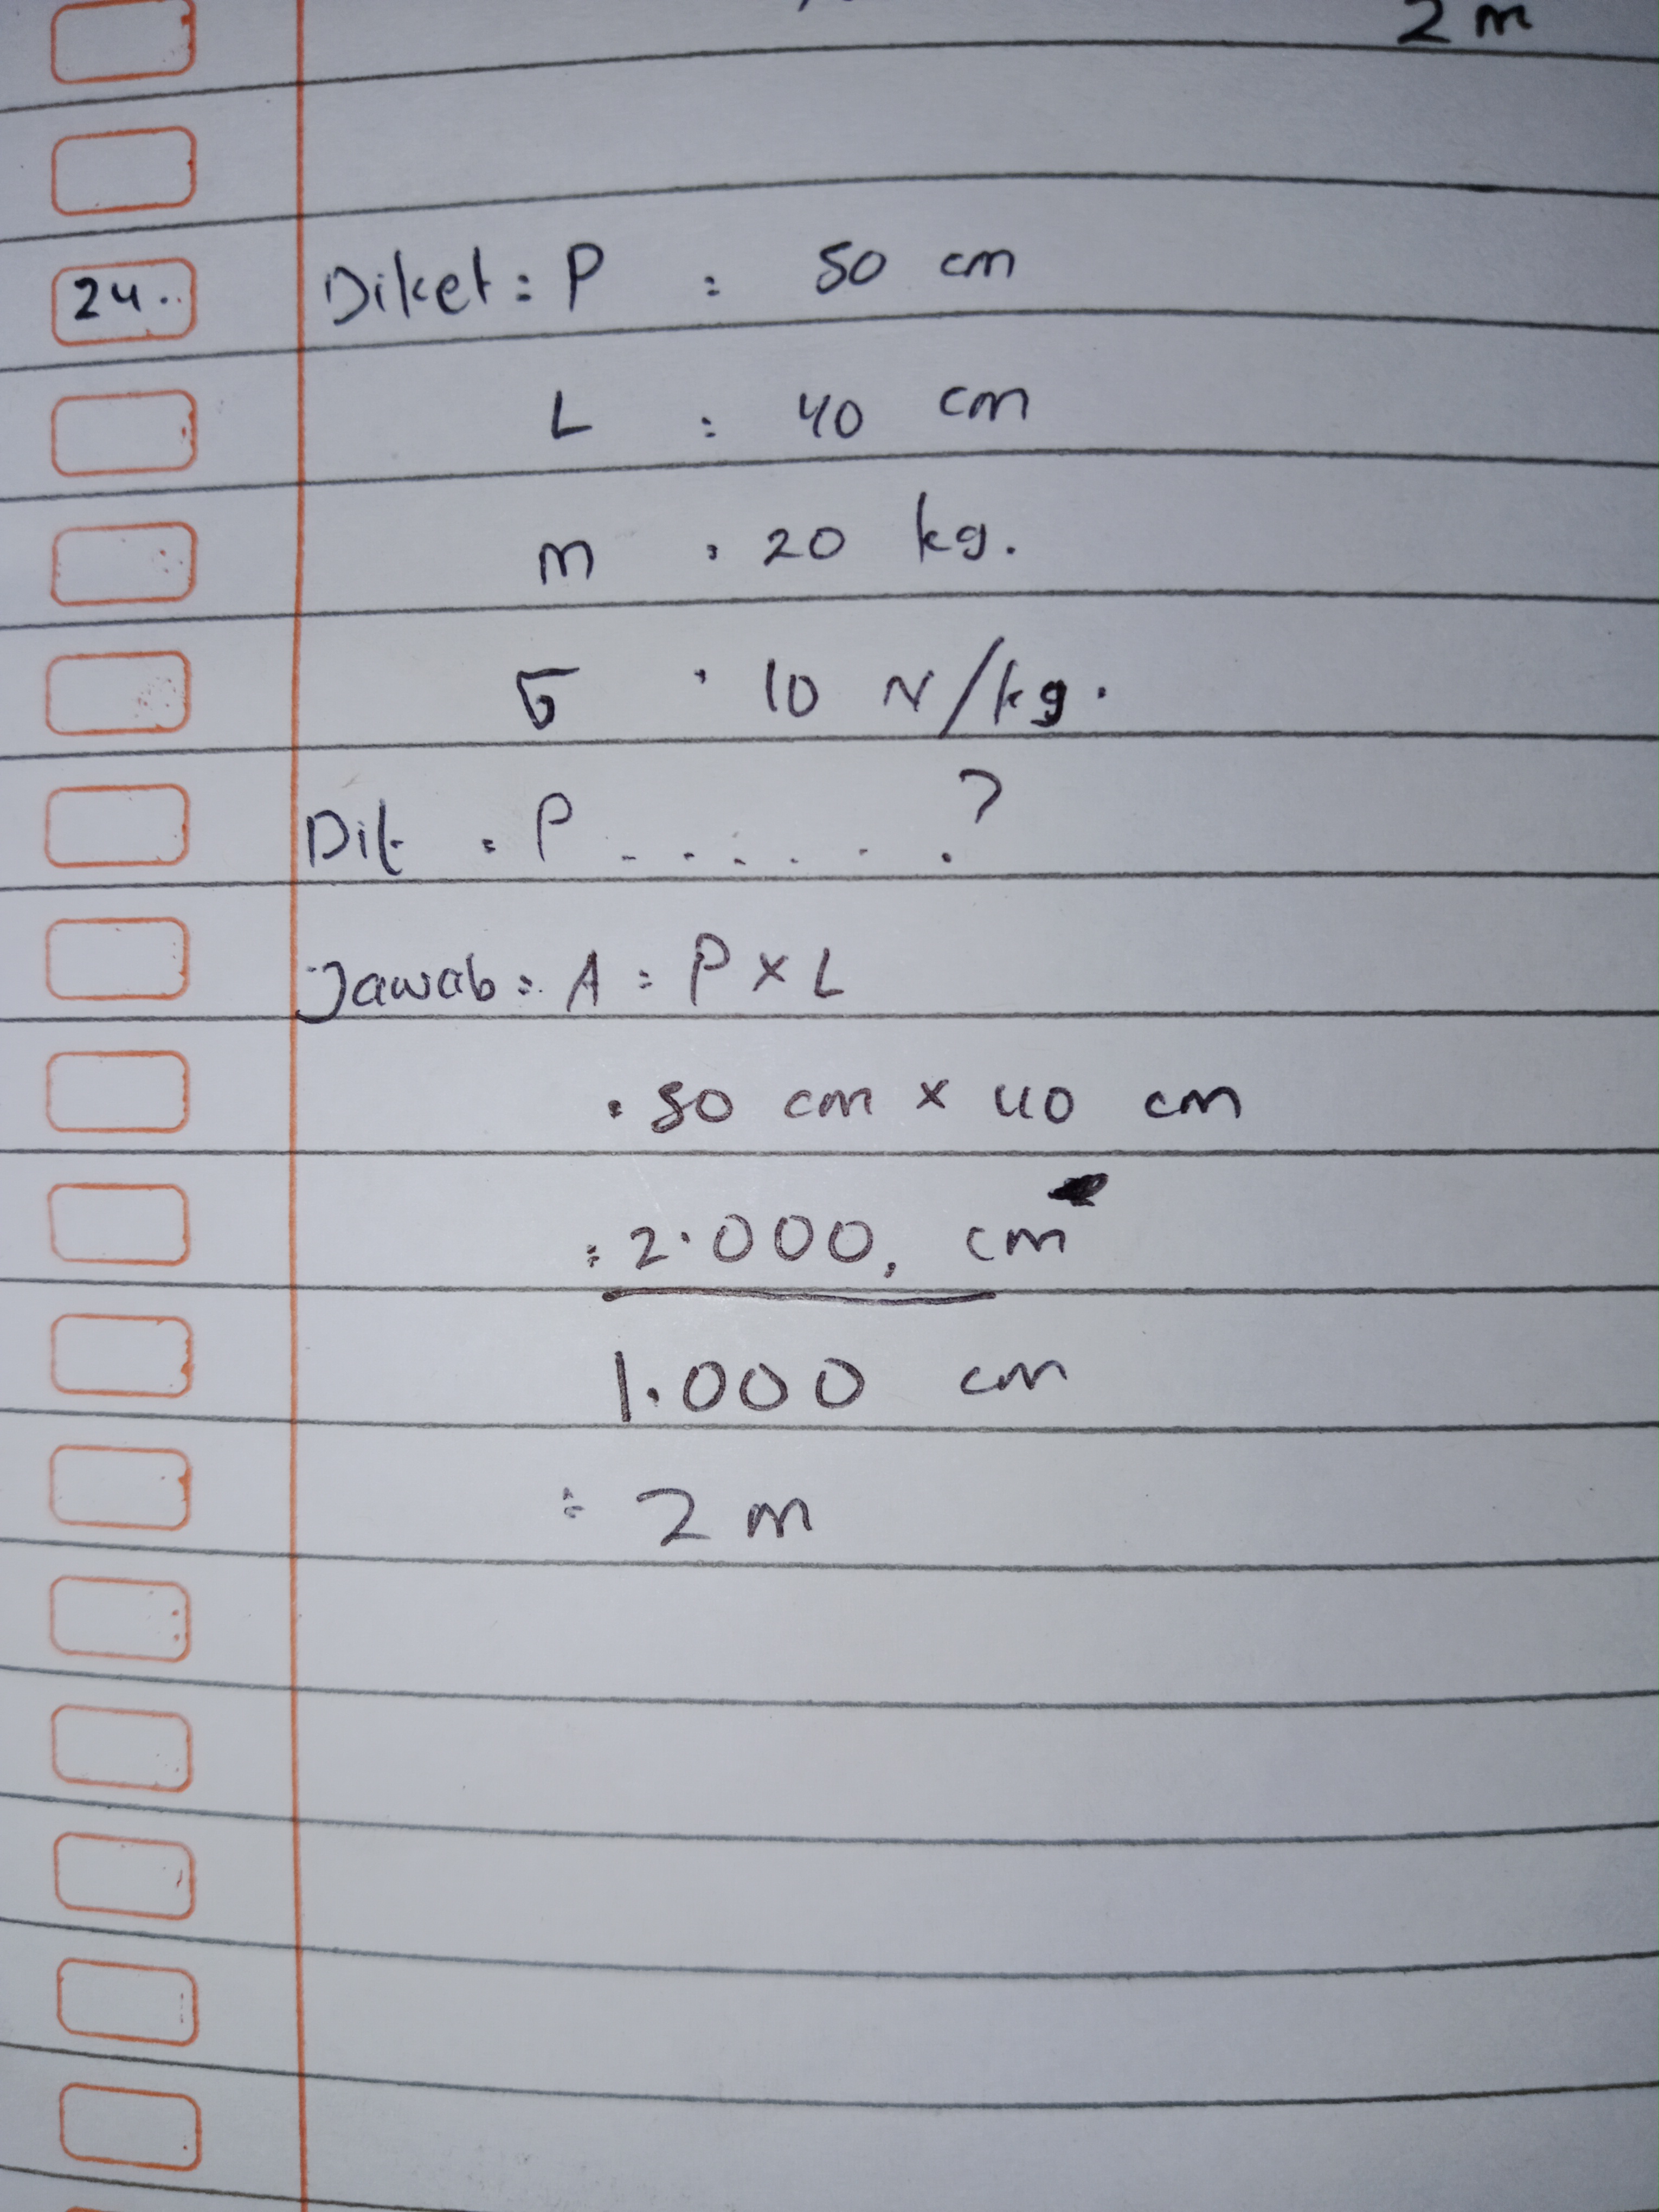 2 m
24. Diket : P : 50 cm
L : 40 cm
m : 20 kg.
G : 10 N/kg.
Dit : P . . . . . . ?
Jawab : A : P x L
: 50 cm x 40 cm
: 2.000, cm
1.000 cm
: 2 m